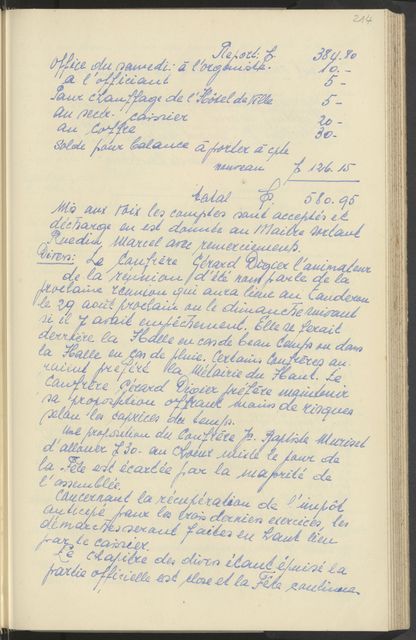 214
Report. fr. 384.80
Office du samedi: à l'organiste. 10.-
à l'officiant 5-
Pour chauffage de l'Hôtel de Ville 5-
au secr. caissier 20-
au Coffre 30-
Solde pour balance à porter à cpte
nouveau fr 126.15
total fr. 580.95
Mis aux voix les comptes sont acceptés et
décharge en est donnée au Maître sortant
Ruedin Marcel avec remerciements.
Divers: Le Confrère Gérard Digier l'animateur
de la réunion d'été nous parle de la
prochaine réunion qui aura lieu au Landeron
le 29 août prochain ou le dimanche suivant
si il y avait empêchement. Elle se ferait
derrière la Halle en cas de beau temps ou dans
la Halle en cas de pluie. Certains Confrères au
raient préféré la Métairie du Haut. Le
Confrère Gérard Digier préfère maintenir
sa proposition offrant moins de risques
selon les caprices du temps.
Une proposition du Confrère J. Baptiste Muriset
d'allouer f 50.- au Chœur mixte le jour de
la Fête est écartée par la majorité de
l'assemblée.
Concernant la récupération de l'impôt
anticipé pour les trois derniers exercices, les
démarches seront faites en haut lieu
par le caissier.
Le chapitre des divers étant épuisé la
partie officielle est close et la Fête continue